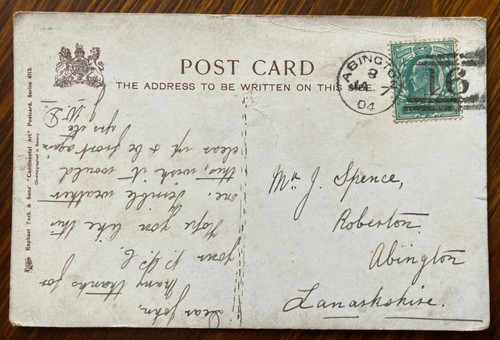 POST CARD
THE ADDRESS TO BE WRITTEN ON THIS SIDE
Raphael Tuck & Sons' "Continental Art" Postcard. Series 4112.
ABINGTON
8
JA 7
04
16
Mr J. Spence,
Roberton.
Abington
Lanarkshire.
Dear John,
Many thanks for
your P.P.C.
Hope you like this
one Terrible weather
this, wish it would
clear up & be frost again
W. D.